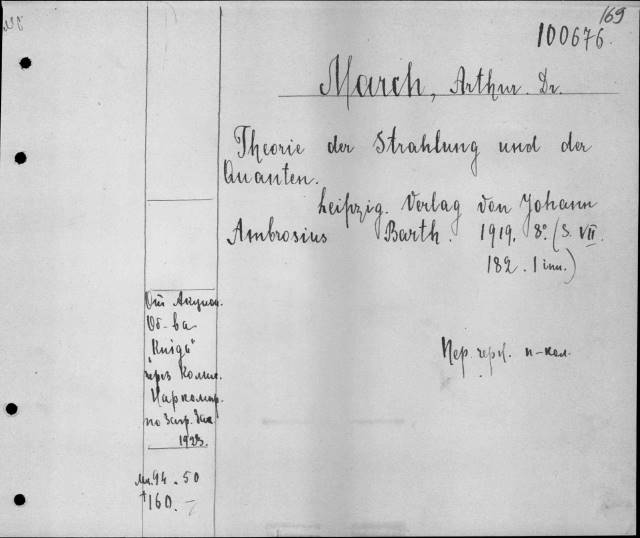 169
100676.
March, Arthur. Dr.
Theorie der Strahlung und der
Quanten.
Leipzig. Verlag von Johann
Ambrosius Barth. 1919. 8°. (S. VII.
182. 1 inn.)
От Акцион.
Об-ва
"Kniga"
через Комис.
Наркомпр.
по загр. зак.
1923.
94.50
160.—
Пер.